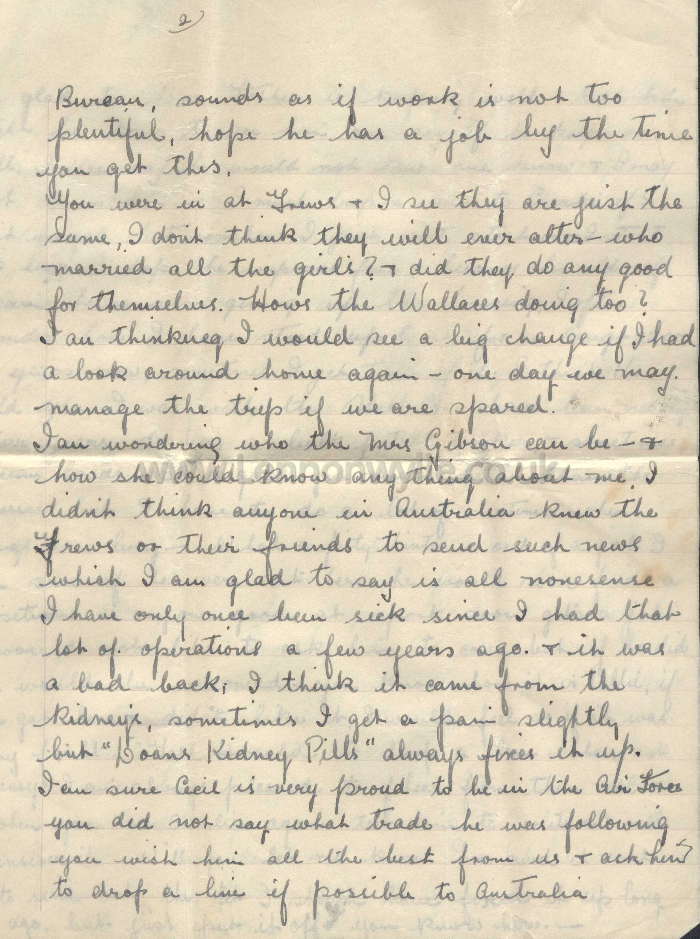 2
Bureau, sounds as if work is not too
plentiful, hope he has a job by the time
you get this.
You were in at Frews & I see they are just the
same, I dont think they will ever alter - who
married all the girls? & did they do any good
for themselves. Hows the Wallaces doing too?
I au thinkueg I would see a big change if I had
a look around home again - one day we may.
manage the trip if we are spared.
I au wondering who the Mrs Gibson can be - &
how she could know anything about me. I
www.Lennonwylie.co.uk
didn't think anyone in Australia knew the
Frews or their friends to send such news
which I am glad to say is all nonesense
I have only once been sick since I had that
lot of operations a few years ago. & it was
a bad back; I think it came from the
Kidney's, sometimes I get a pain slightly
but "Doans Kidney Pills" always fixes it up.
I am sure Cecil is very proud to be in the Air Force
you did not say what trade he was following
you wish him all the best from us & ask him
to drop a line if possible to Australia